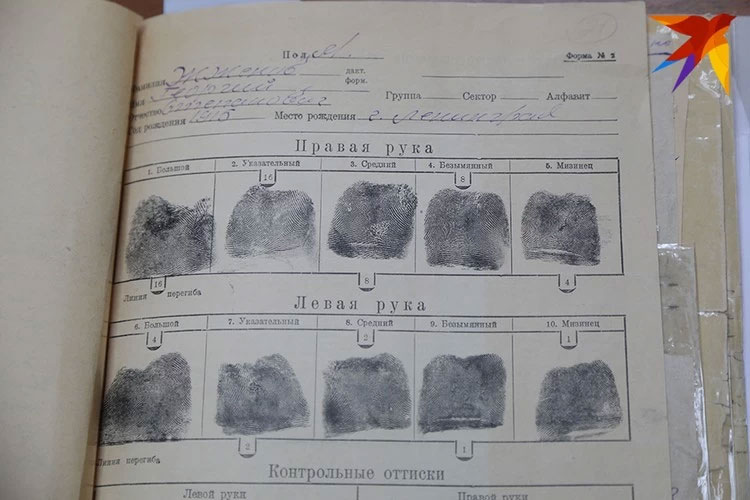 Пол М.
Форма № 2
Фамилия Жженов
дакт. форм.
Имя Георгий
Группа Сектор Алфавит
Отчество Степанович
Год рождения 1915 Место рождения г. Ленинград
Правая рука
1. Большой 2. Указательный 3. Средний 4. Безымянный 5. Мизинец
16 8
16 8 4
Линия перегиба
Левая рука
6. Большой 7. Указательный 8. Средний 9. Безымянный 10. Мизинец
4 2 1
2 1
Линия перегиба
Контрольные оттиски
Левой руки Правой руки